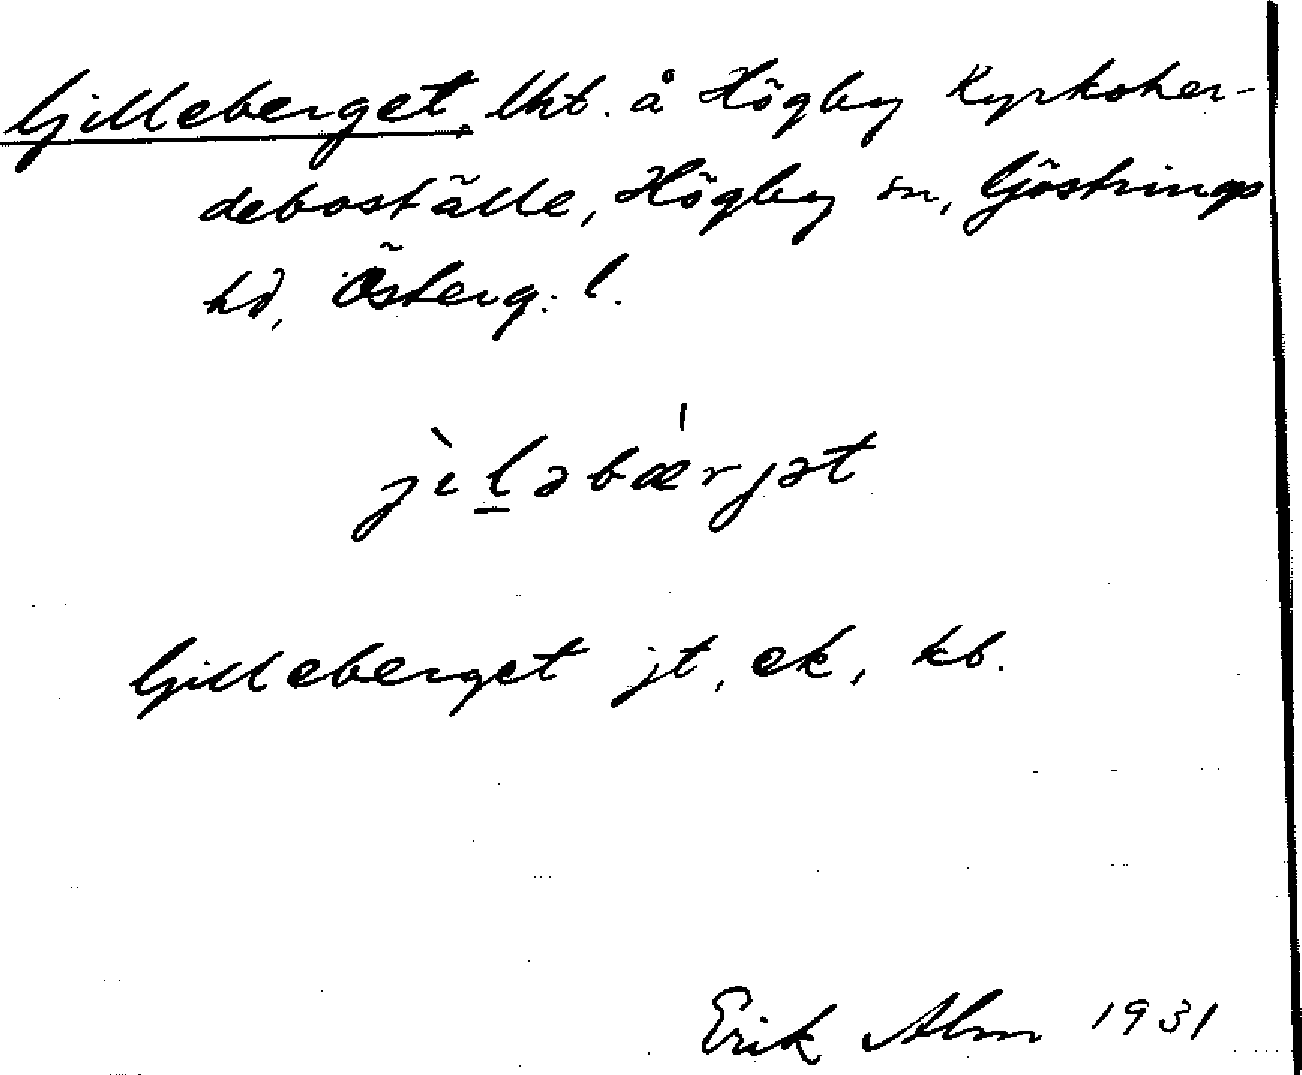 Gilleberget, lht. å Högby Kyrkoher-
deboställe, Högby sn, Göstrings
hd, Österg. l.
jìləbǽrjət
Gilleberget jt, ek, kb.
Erik Alm 1931